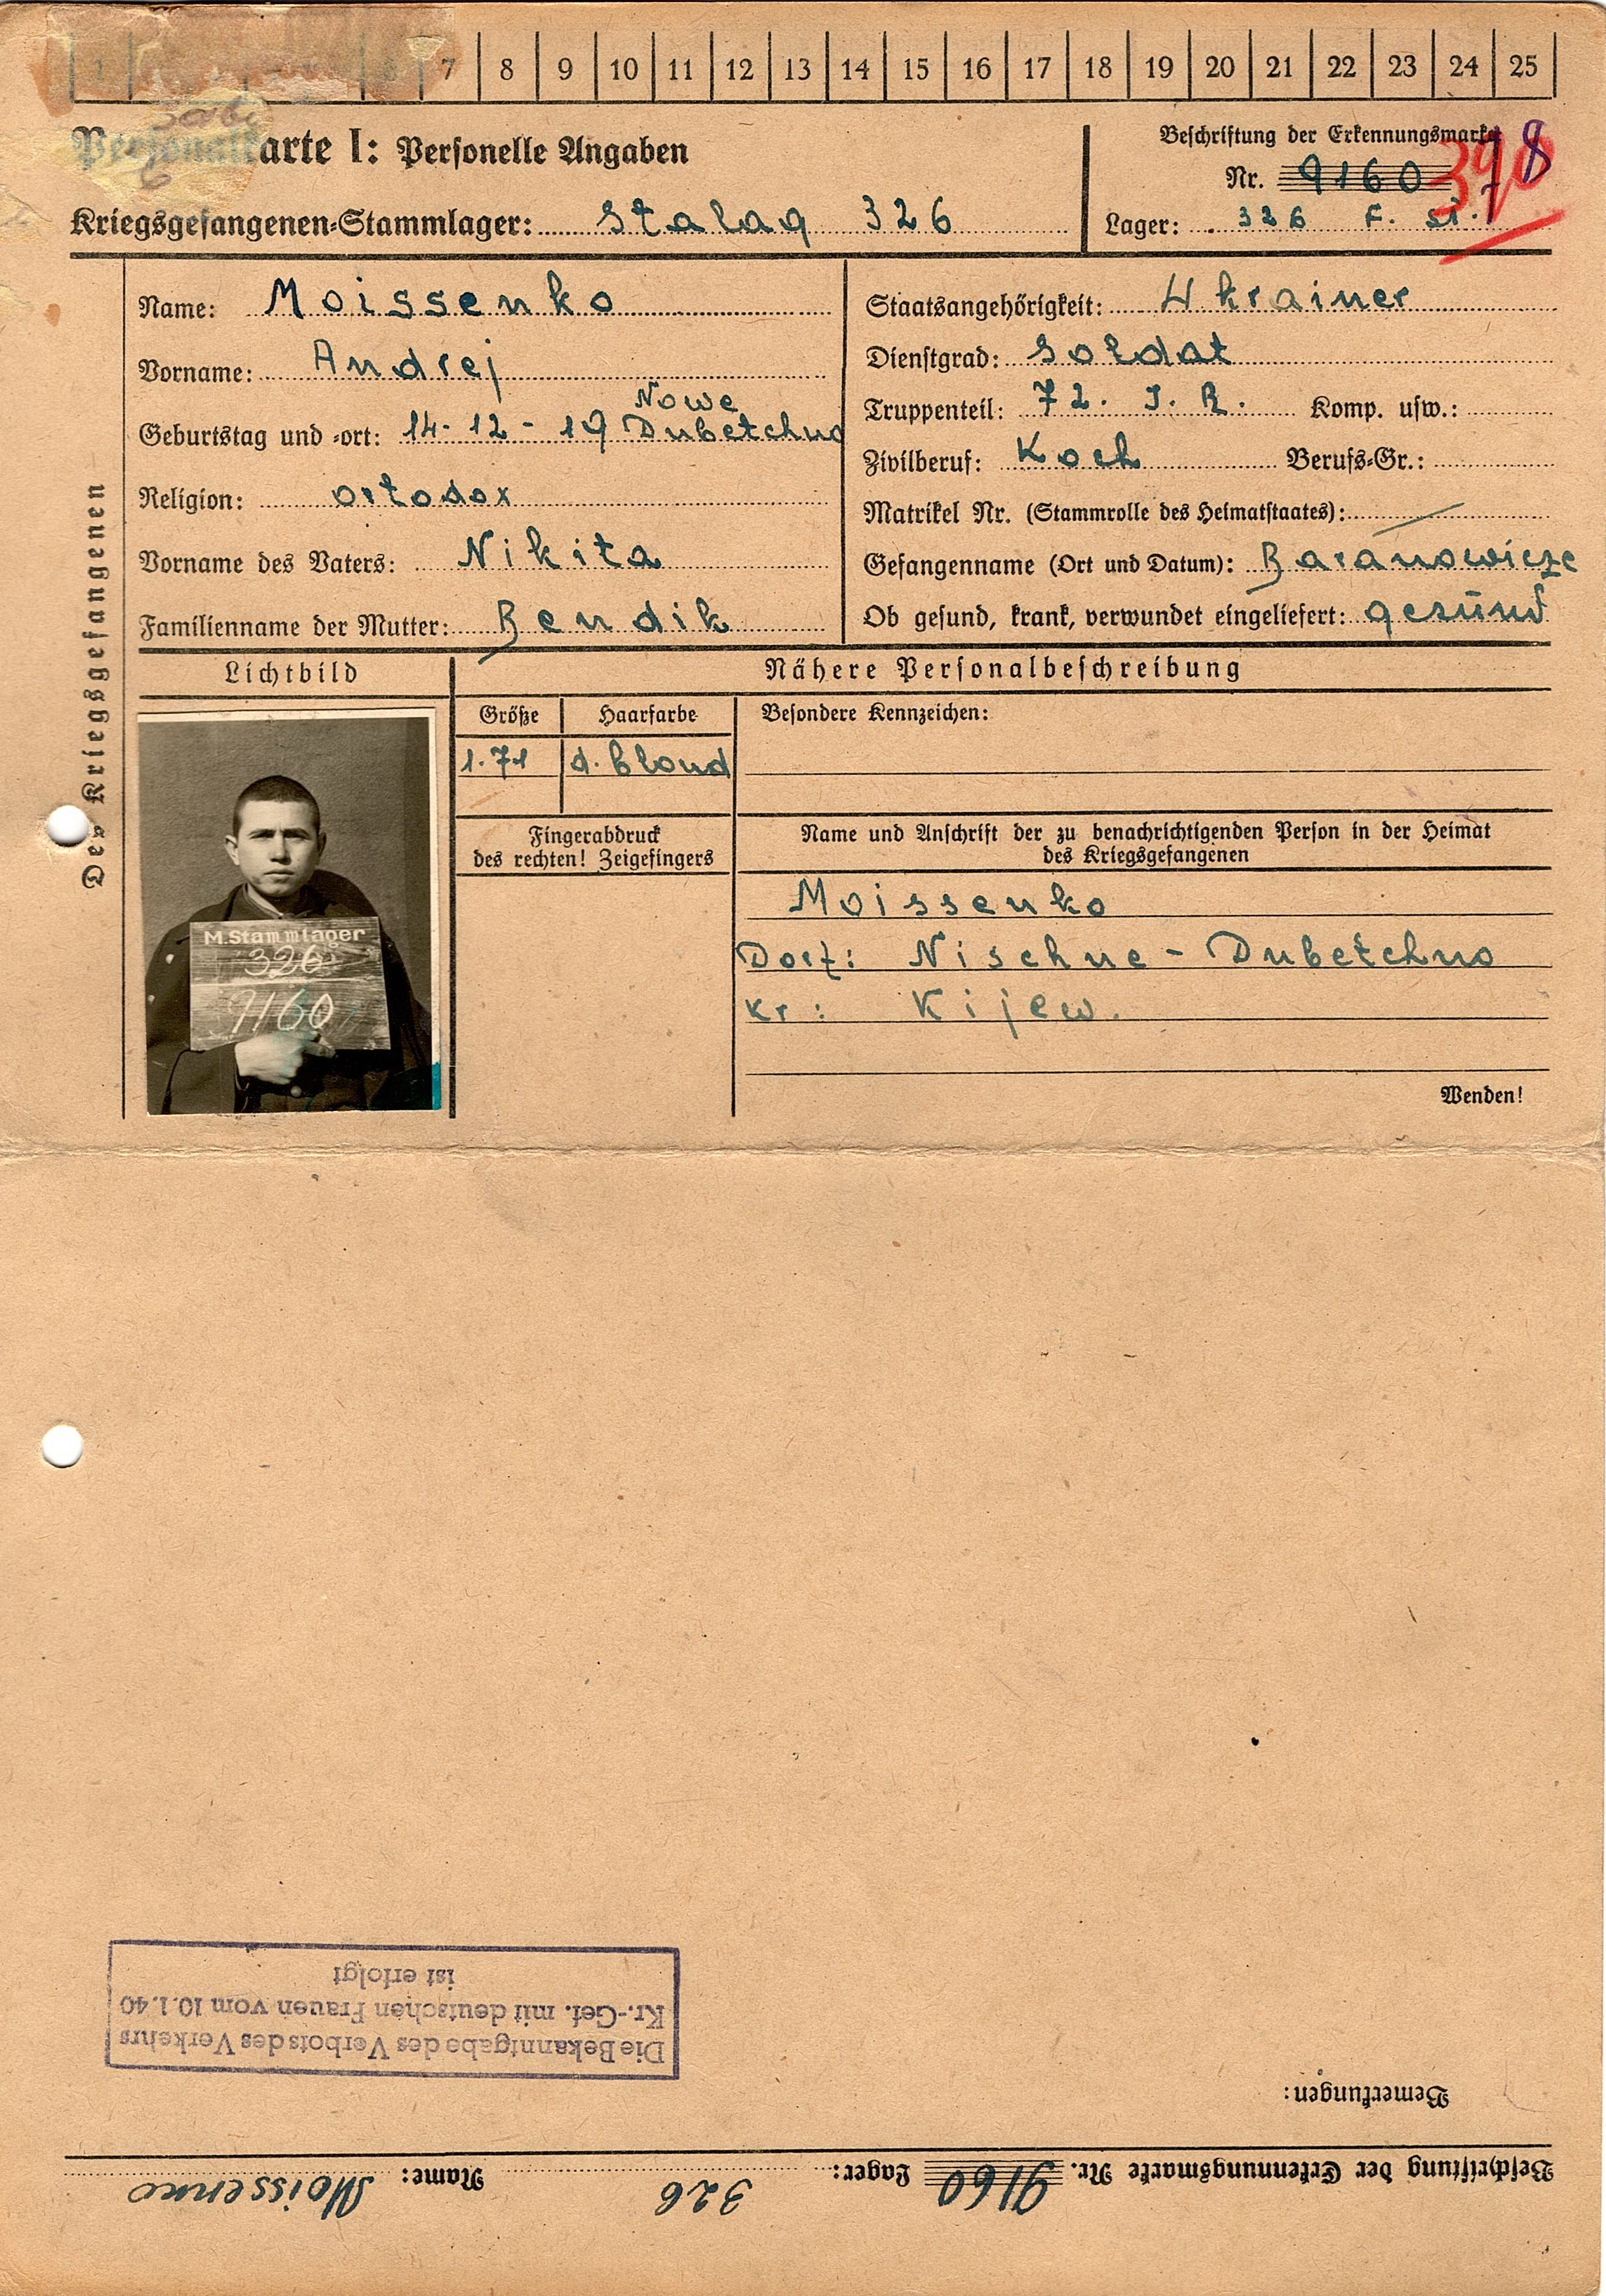 7 8 9 10 11 12 13 14 15 16 17 18 19 20 21 22 23 24 25
Personalkarte I: Personelle Angaben
Kriegsgefangenen-Stammlager: Stalag 326
Beschriftung der Erkennungsmarke
Nr. 9160
Lager: 326 F. St.
8
Des Kriegsgefangenen
Name: Moissenko
Vorname: Andrej
Nowe
Geburtstag und -ort: 14-12-19 Dubetchno
Religion: ortodox
Vorname des Vaters: Nikita
Familienname der Mutter: Bendik
Staatsangehörigkeit: Ukrainer
Dienstgrad: Soldat
Truppenteil: 72. J. R. Komp. usw.:
Zivilberuf: Koch Berufs-Gr.:
Matrikel Nr. (Stammrolle des Heimatstaates): /
Gefangenname (Ort und Datum): Baranowicze
Ob gesund, krank, verwundet eingeliefert: gesund
Lichtbild
M.Stammlager
326
9160
Nähere Personalbeschreibung
Größe Haarfarbe
1.71 d. blond
Besondere Kennzeichen:
Fingerabdruck
des rechten! Zeigefingers
Name und Anschrift der zu benachrichtigenden Person in der Heimat
des Kriegsgefangenen
Moissenko
Dorf: Nischne - Dubetchno
Kr: Kijew.
Wenden!
Beschriftung der Erkennungsmarke Nr. 9160 Lager: 326 Name: Moissenko
Bemerkungen:
Die Bekanntgabe des Verbots des Verkehrs
Kr.-Gef. mit deutschen Frauen vom 10.1.40
ist erfolgt